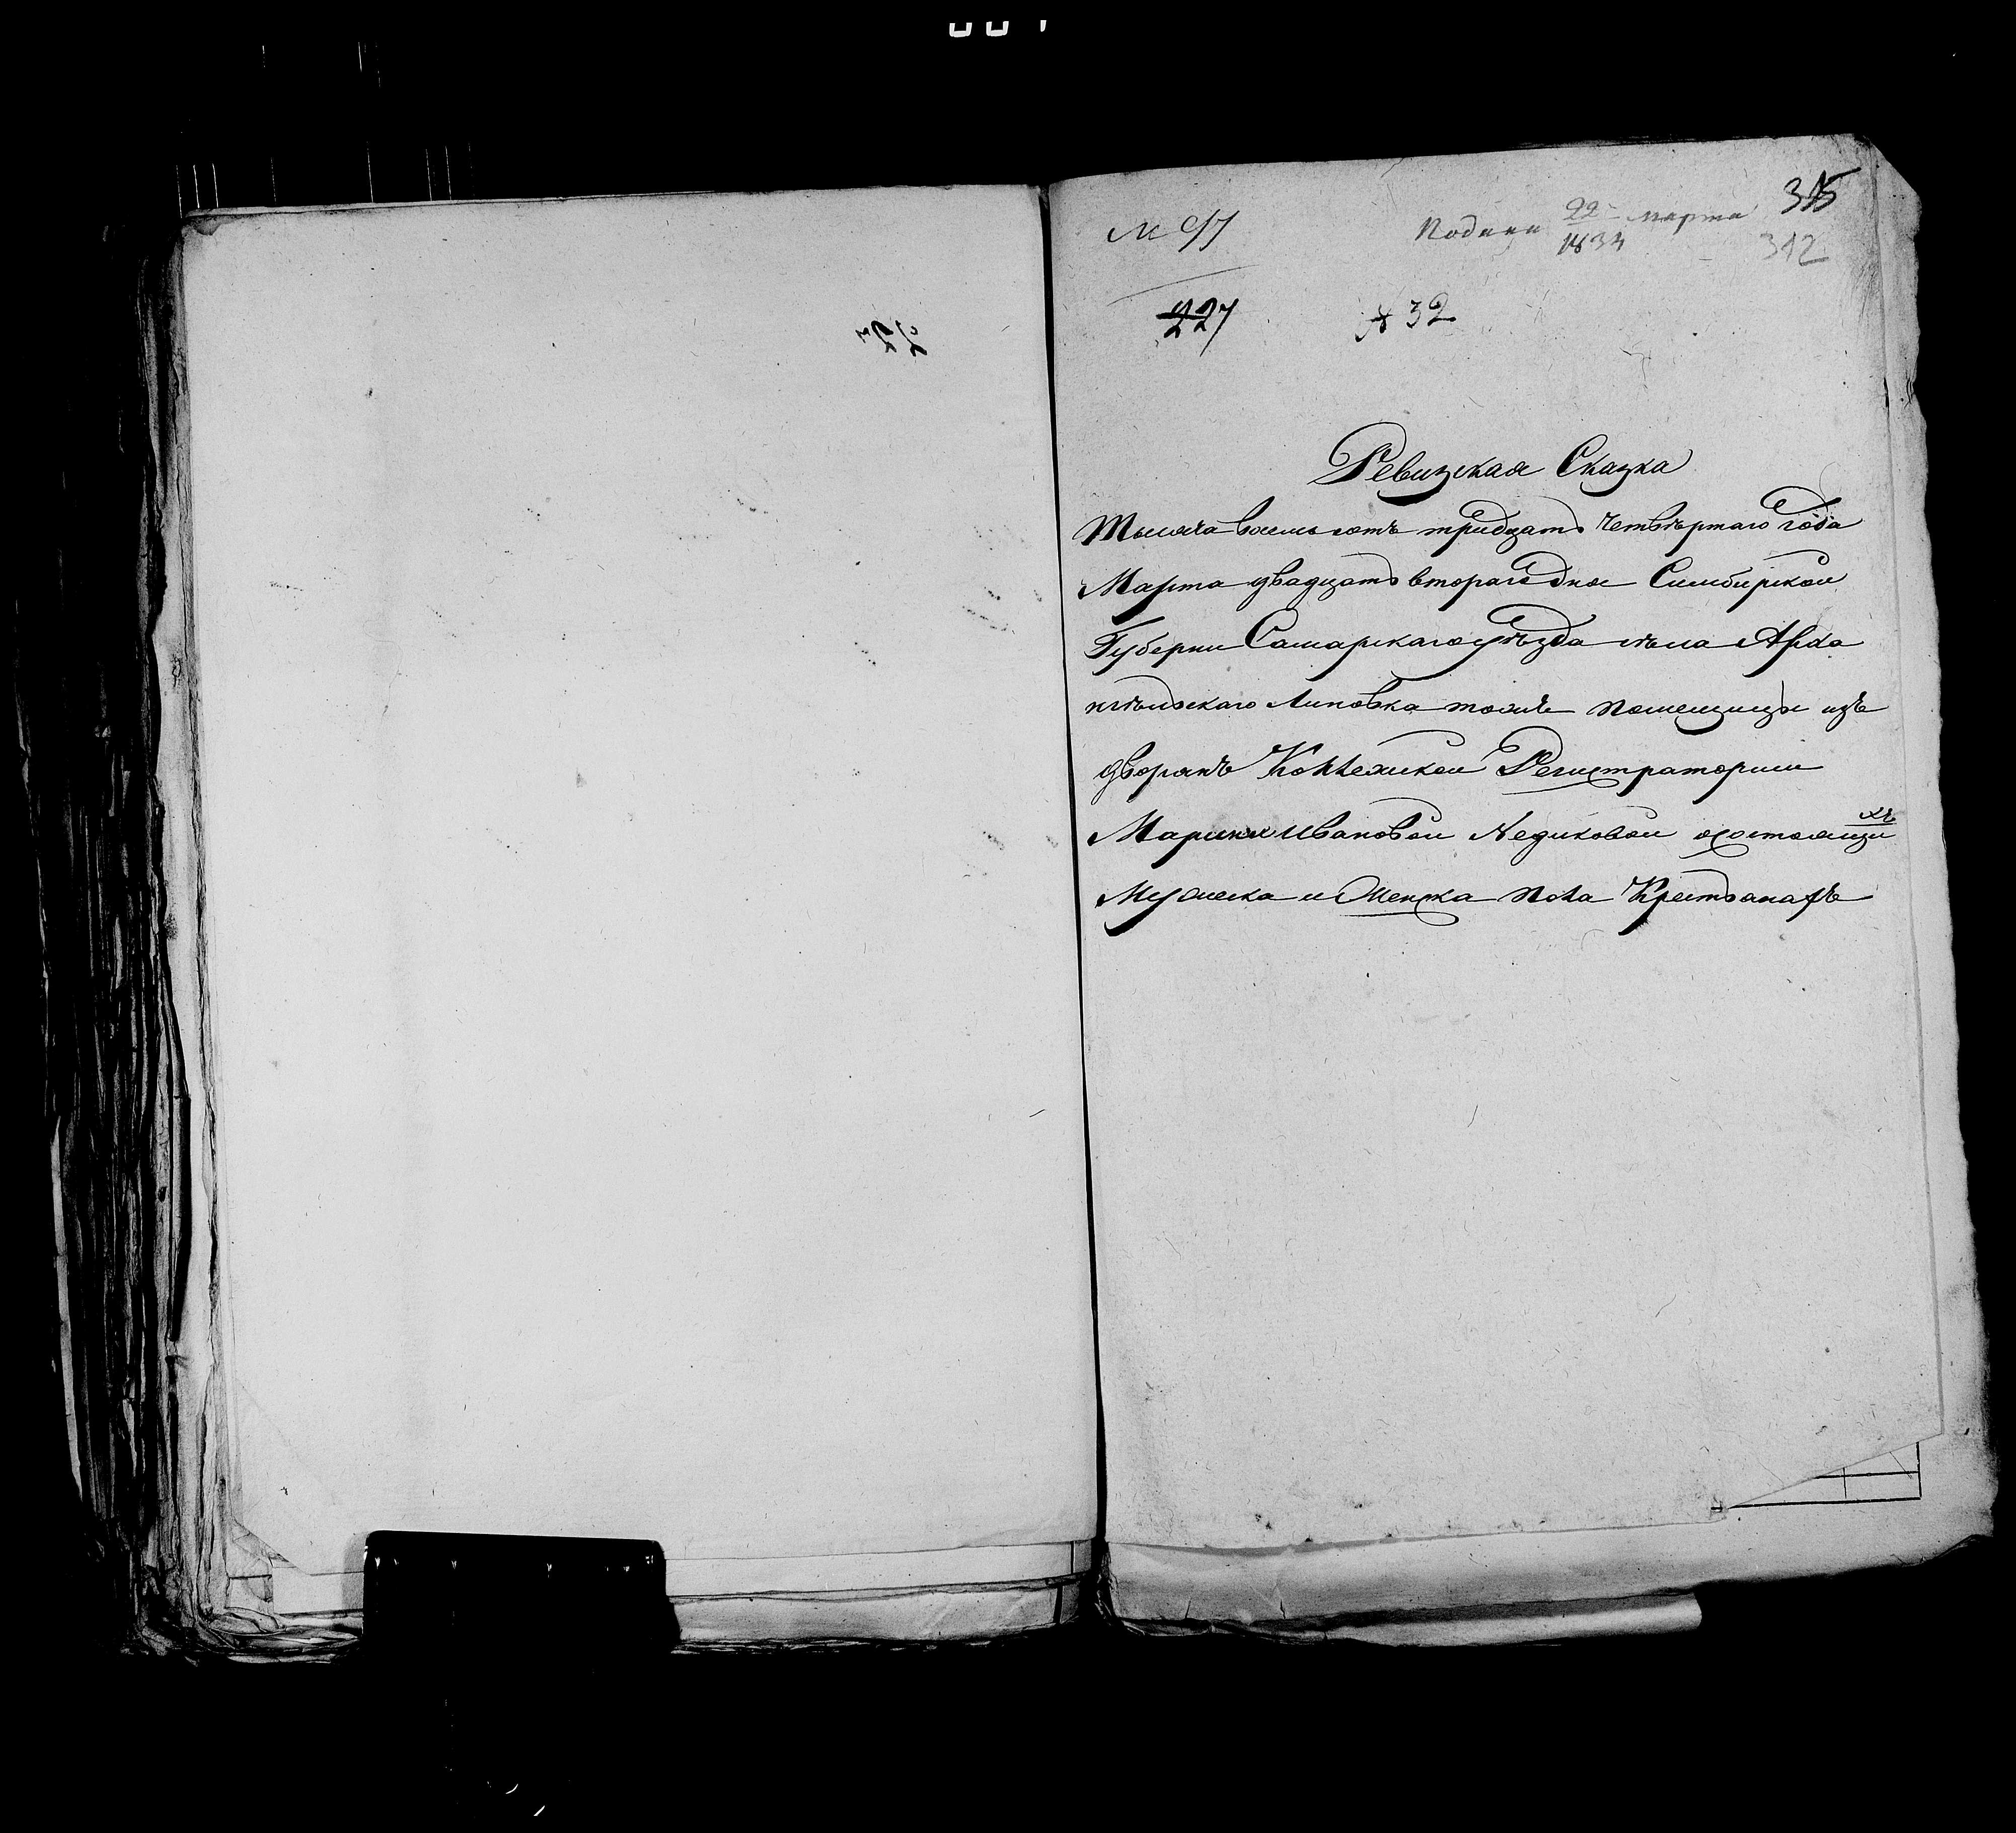 № 97
Подана 22 марта 1834
315
312
227
№ 32
Ревизская Сказка
Тысяча восемь сотъ тридцать четвѣртаго года
Марта двадцать втораго дня Симбирской
Губернии Самарскаго уѣзда сѣла Арха
нгѣльскаго Липовка тожъ помещицы изъ
дворянъ Коллежской Регистраторши
Марьи Ивановой состоящихъ
Мужеска и Женска пола Крестьанахъ